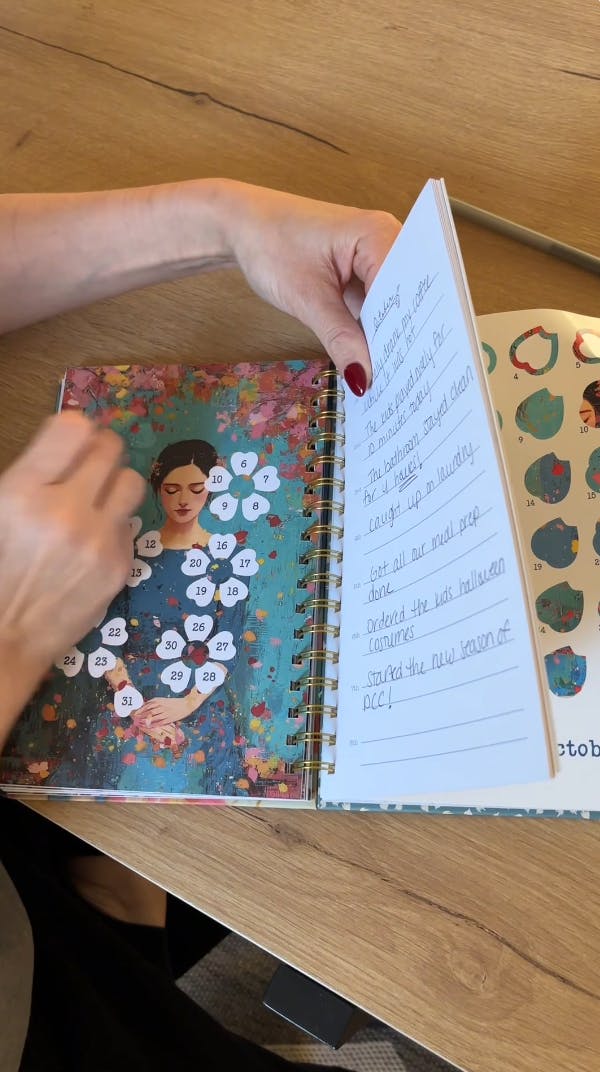 6
10
7
9
8
12
16
20
17
13
19
18
22
26
30
27
24
23
29
28
31
October
drank my coffee
while it was hot
The kids played nicely for
10 minutes today
The bathroom stayed clean
for 4 hours!
Caught up on laundry
Got all our meal prep
done
Ordered the kids halloween
costumes
Started the new season of
DCC!
4
5
9
10
14
15
19
ctob